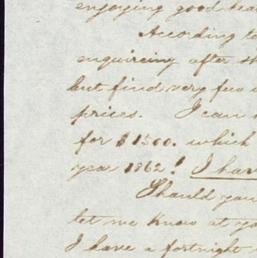 enjoying good hea
According to
enquireing after s
but find very few
prices. I can
for $1500. which
year 1862! I hav
Should you
let me know at yo
I have a fortnight